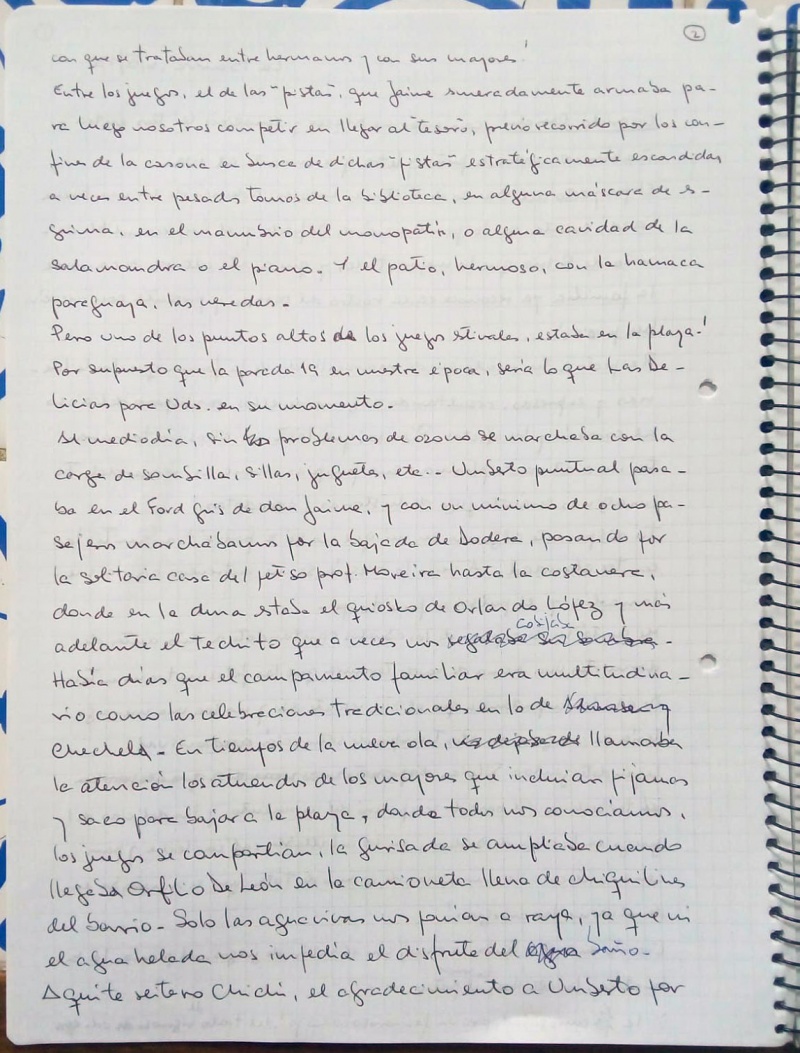 ②
con que se trataban entre hermanos y con sus mayores!
Entre los juegos, el de las "pistas", que Jaime esmeradamente armaba pa-
ra luego nosotros competir en llegar al tesoro, previo recorrido por los con-
fines de la casona en busca de dichas "pistas" estratégicamente escondidas
a veces entre pesados tomos de la biblioteca, en alguna máscara de es-
grima, en el manubrio del monopatín, o alguna cavidad de la
salamandra o el piano. Y el patio, hermoso, con la hamaca
paraguaya, las veredas.
Pero uno de los puntos altos de los juegos estivales, estaba en la playa!
Por supuesto que la parada 19 en nuestra época, sería lo que Las De-
licias para Uds. en su momento.
Al mediodía, sin problemas de ozono se marchaba con la
carga de sombrilla, sillas, juguetes, etc.. Umberto puntual pasa-
ba en el Ford gris de don Jaime, y con un mínimo de ocho pa-
sajeros marchábamos por la bajada de Dodera, pasando por
la solitaria casa del petiso prof. Moreira hasta la costanera,
donde en la duna estaba el quiosko de Orlando López y más
adelante el techito que a veces nos cobijaba.
Había días que el campamento familiar era multitudina-
rio como las celebraciones tradicionales en lo de
Chechela. En tiempos de la nueva ola, llamaba
la atención los atuendos de los mayores que incluían pijamas
y saco para bajar a la playa, donde todos nos conocíamos,
los juegos se compartían, la gurisada se ampliaba cuando
llegaba Orfilio De León en la camioneta llena de chiquilines
del barrio. Solo las aguavivas nos ponían a raya, ya que ni
el agua helada nos impedía el disfrute del baño.
Aquí te reitero Chichí, el agradecimiento a Umberto por